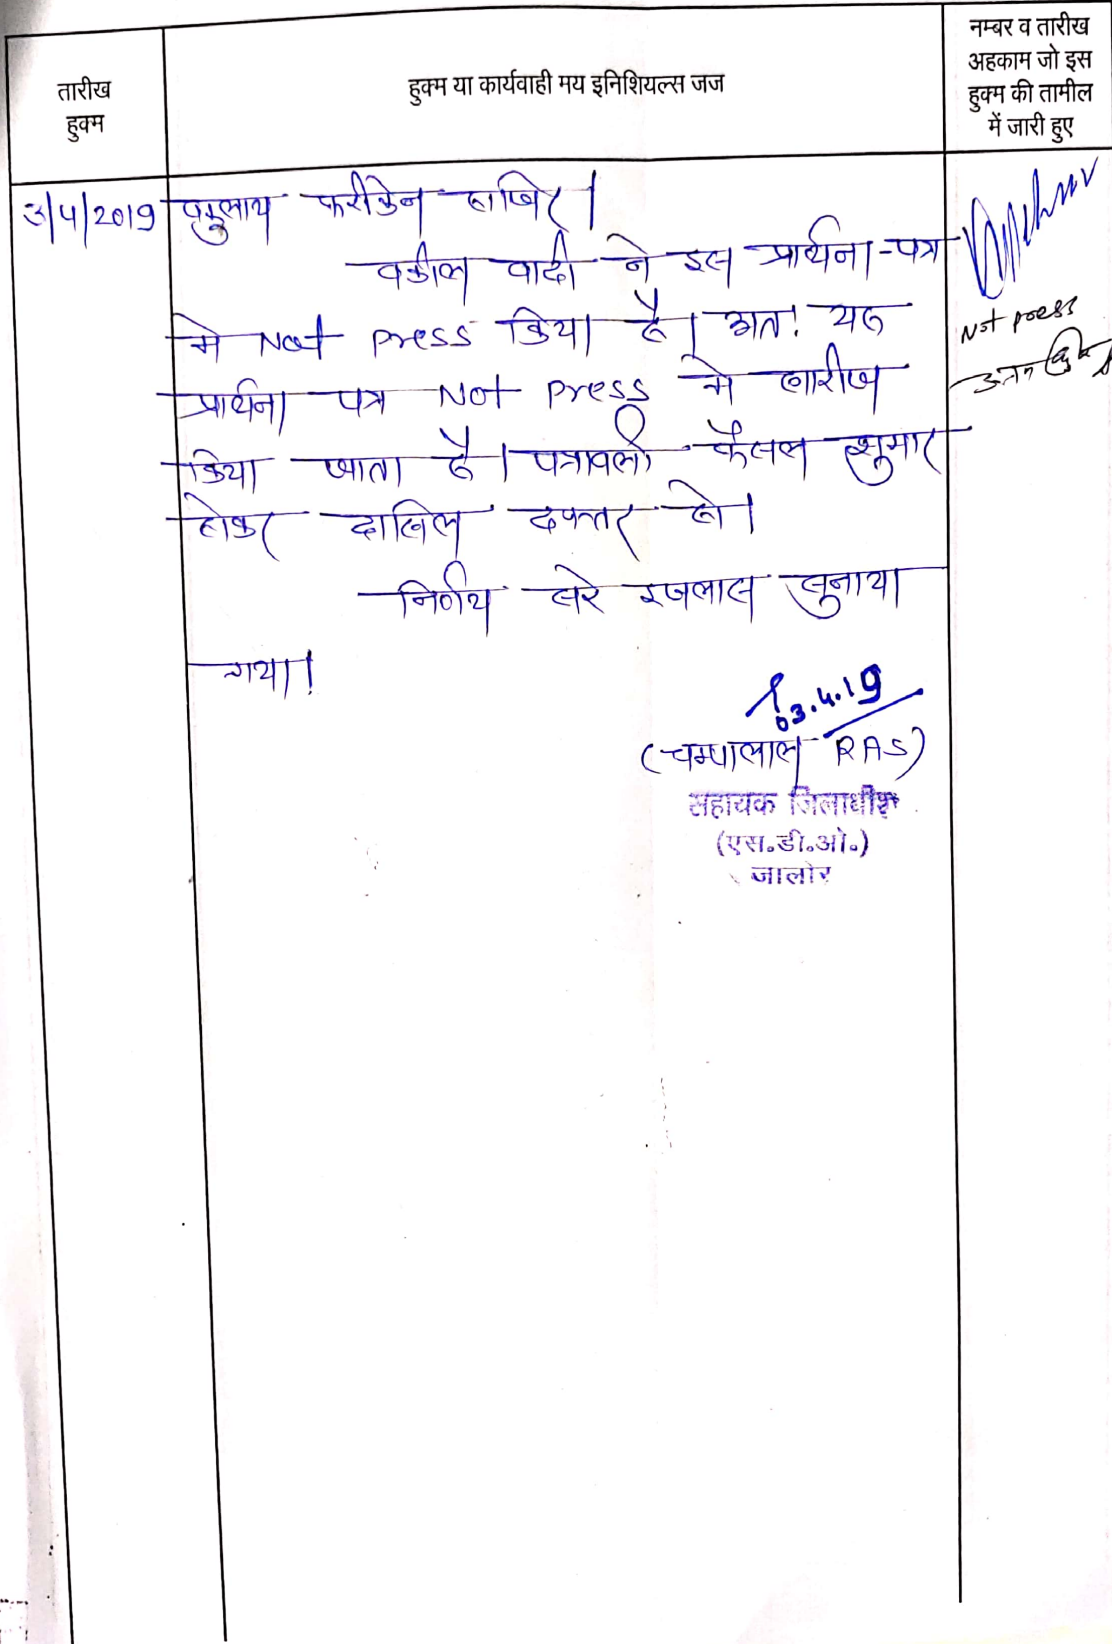 तारीख
हुक्म
हुक्म या कार्यवाही मय इनिशियल्स जज
नम्बर व तारीख
अहकाम जो इस
हुक्म की तामील
में जारी हुए
3/4/2019 वकुलाय फरीकेन हाजिर।
वकील वादी ने इस प्रार्थना-पत्र
मे Not press किया है। अतः यह
प्रार्थना पत्र Not press मे खारीज
किया जाता है। पत्रावली फैसल शुमार
होकर दाखिल दफ्तर हो।
निर्णय सरे इजलास सुनाया
गया।
Not press
03.4.19
(चम्पालाल RAS)
सहायक जिलाधीश
(एस.डी.ओ.)
जालोर